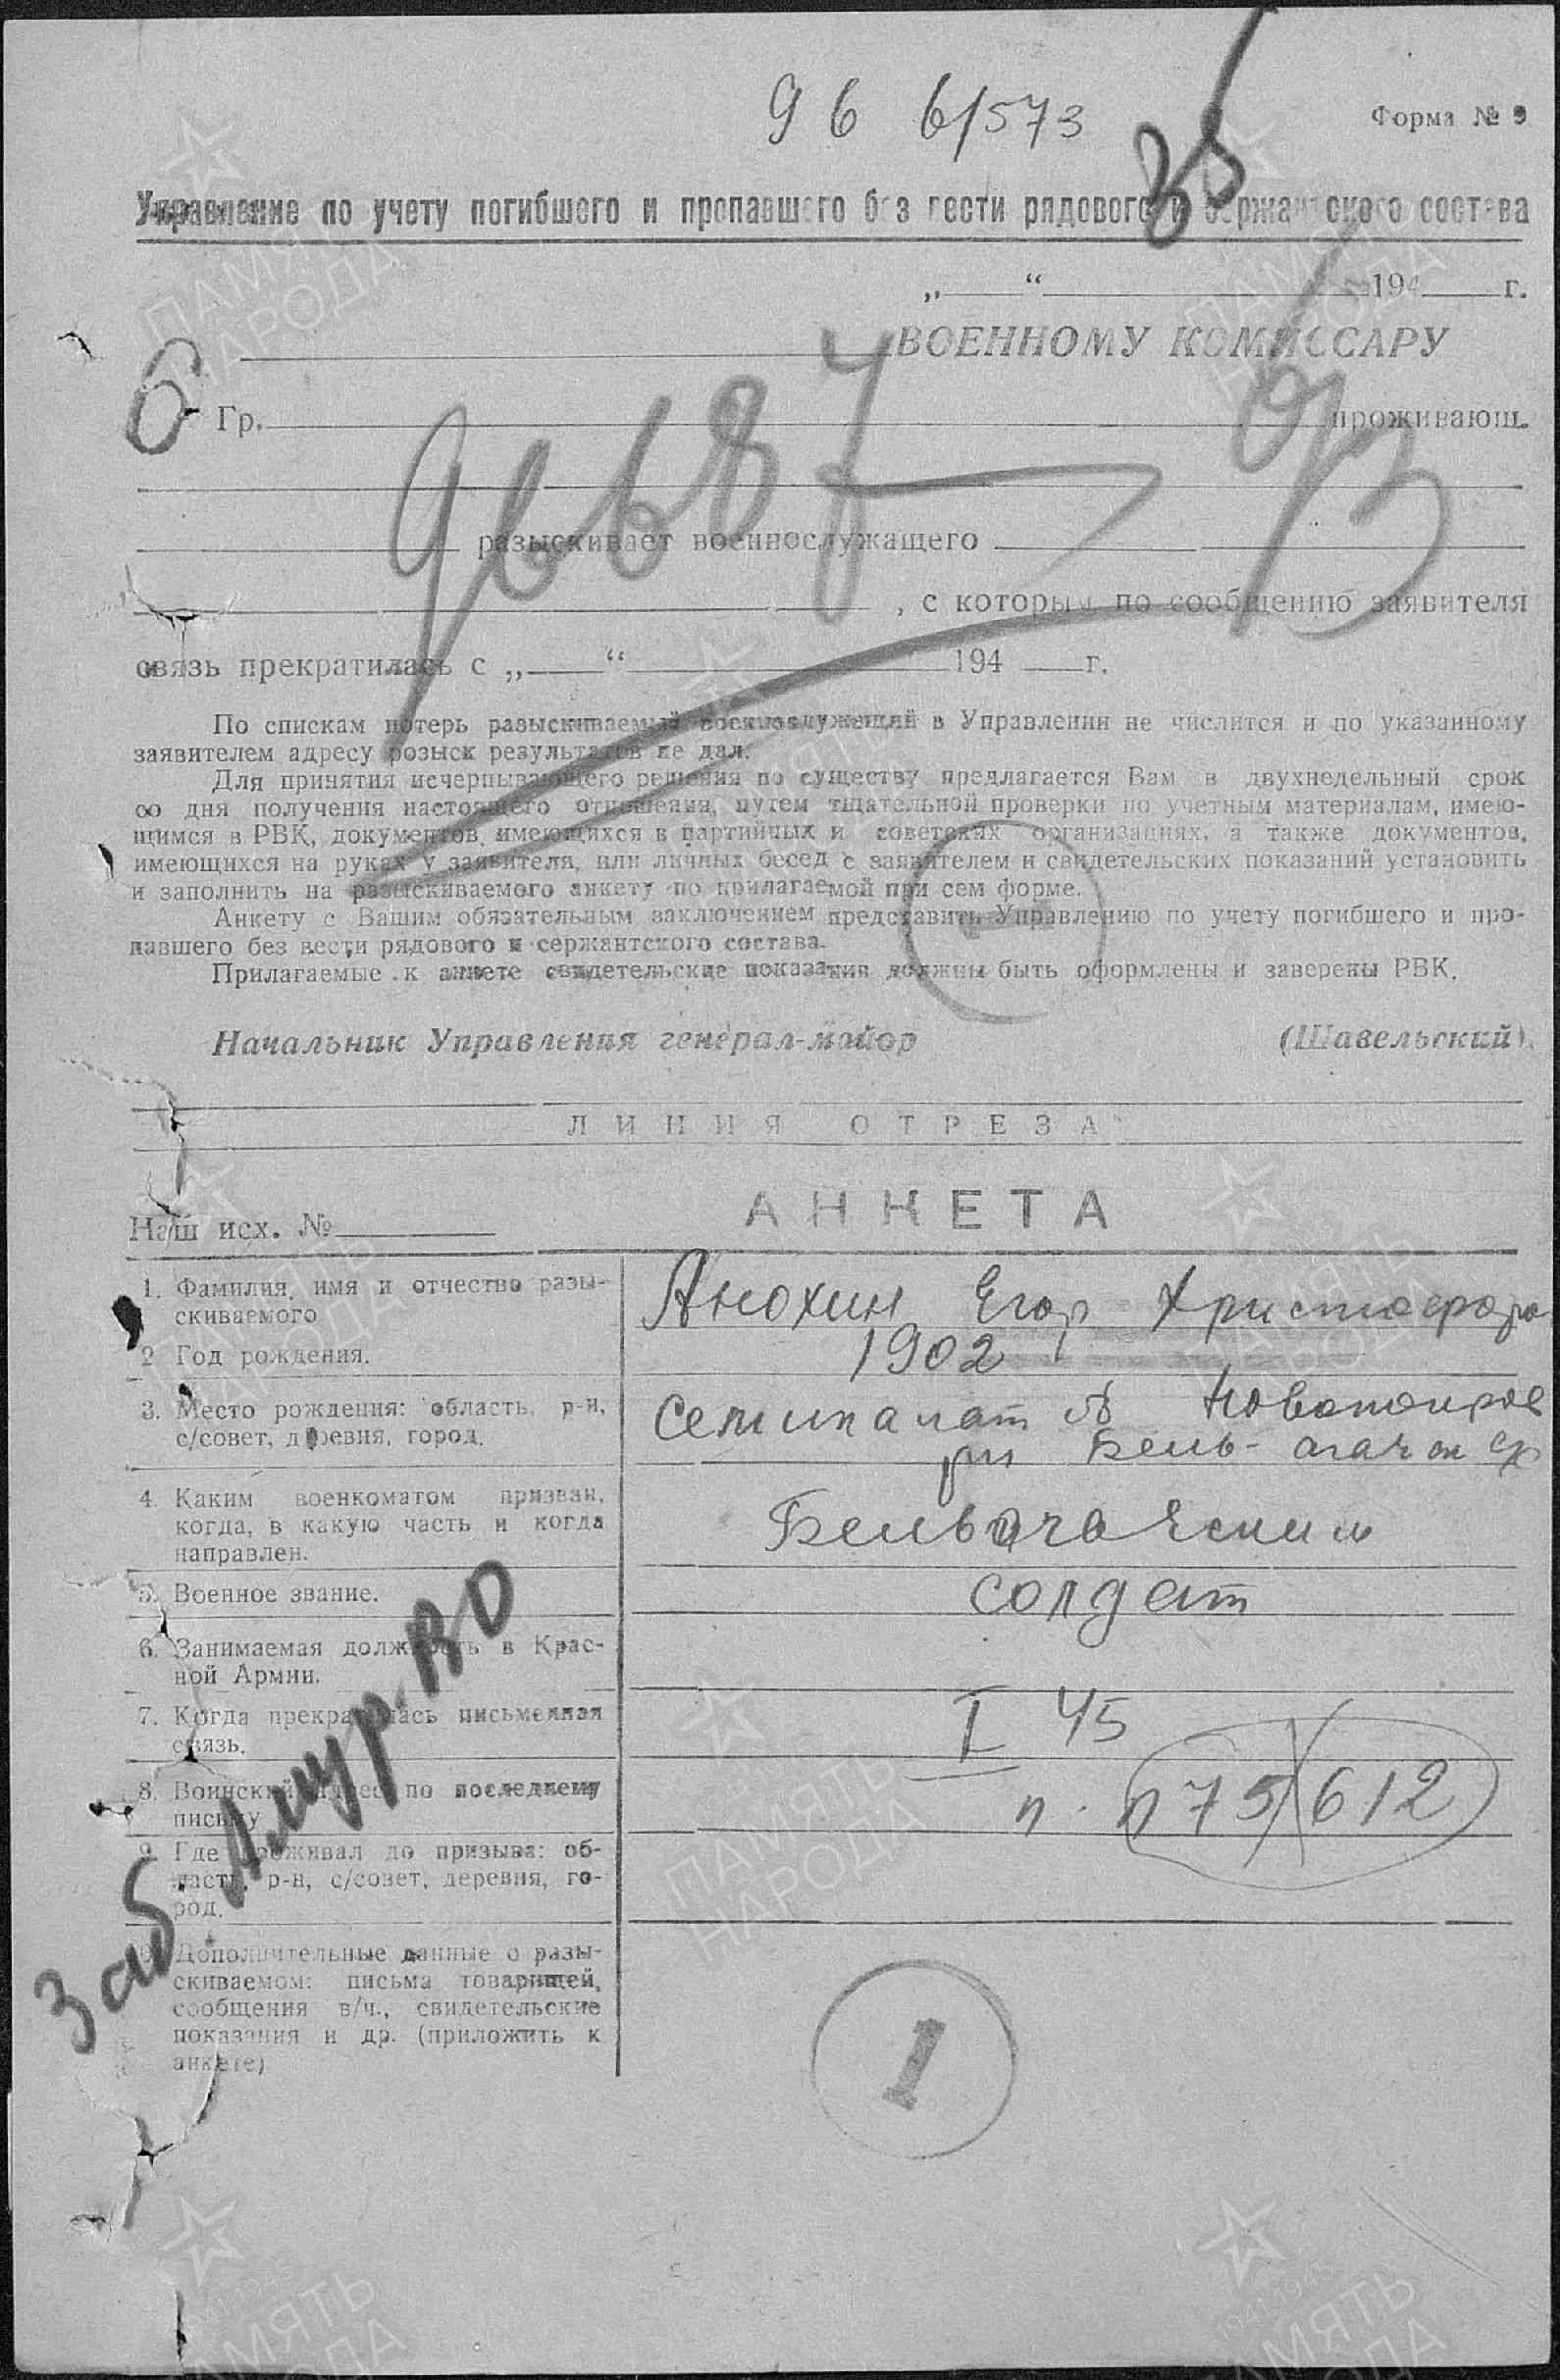 96 6/573
Форма № 9
35
Управление по учету погибшего и пропавшего без вести рядового и сержантского состава
„ “ 194 г.
ВОЕННОМУ КОМИССАРУ
6
Гр. проживающ.
96687
разыскивает военнослужащего
, с которым по сообщению заявителя
связь прекратилась с „ “ 194 г.
По спискам потерь разыскиваемый военнослужащий в Управлении не числится и по указанному
заявителем адресу розыск результатов не дал.
Для принятия исчерпывающего решения по существу предлагается Вам в двухнедельный срок
со дня получения настоящего отношения, путем тщательной проверки по учетным материалам, имею-
щимся в РВК, документов, имеющихся в партийных и советских организациях, а также документов,
имеющихся на руках у заявителя, или личных бесед с заявителем и свидетельских показаний установить
и заполнить на разыскиваемого анкету по прилагаемой при сем форме.
Анкету с Вашим обязательным заключением представить Управлению по учету погибшего и про-
павшего без вести рядового и сержантского состава.
Прилагаемые к анкете свидетельские показания должны быть оформлены и заверены РВК.
1
Начальник Управления генерал-майор (Шавельский).
ЛИНИЯ ОТРЕЗА
АНКЕТА
Наш исх. №
1. Фамилия, имя и отчество разы-
скиваемого
Анохин Егор Христофоро
2 Год рождения.
1902
3. Место рождения: область, р-н,
с/совет, деревня, город.
Семипалат
рн Бель-агач
4. Каким военкоматом призван,
когда, в какую часть и когда
направлен.
Бельагачским
5. Военное звание.
солдат
6. Занимаемая должность в Крас-
ной Армии.
7. Когда прекратилась письменная
связь.
I 45
8. Воинский адрес по последнему
письму
п. п 75612
9. Где проживал до призыва: об-
ласть, р-н, с/совет, деревня, го-
род.
Дополнительные данные о разы-
скиваемом: письма товарищей,
сообщения в/ч., свидетельские
показания и др. (приложить к
анкете)
Заб. Амур. ВО
1
ПАМЯТЬ
НАРОДА
1941-1945